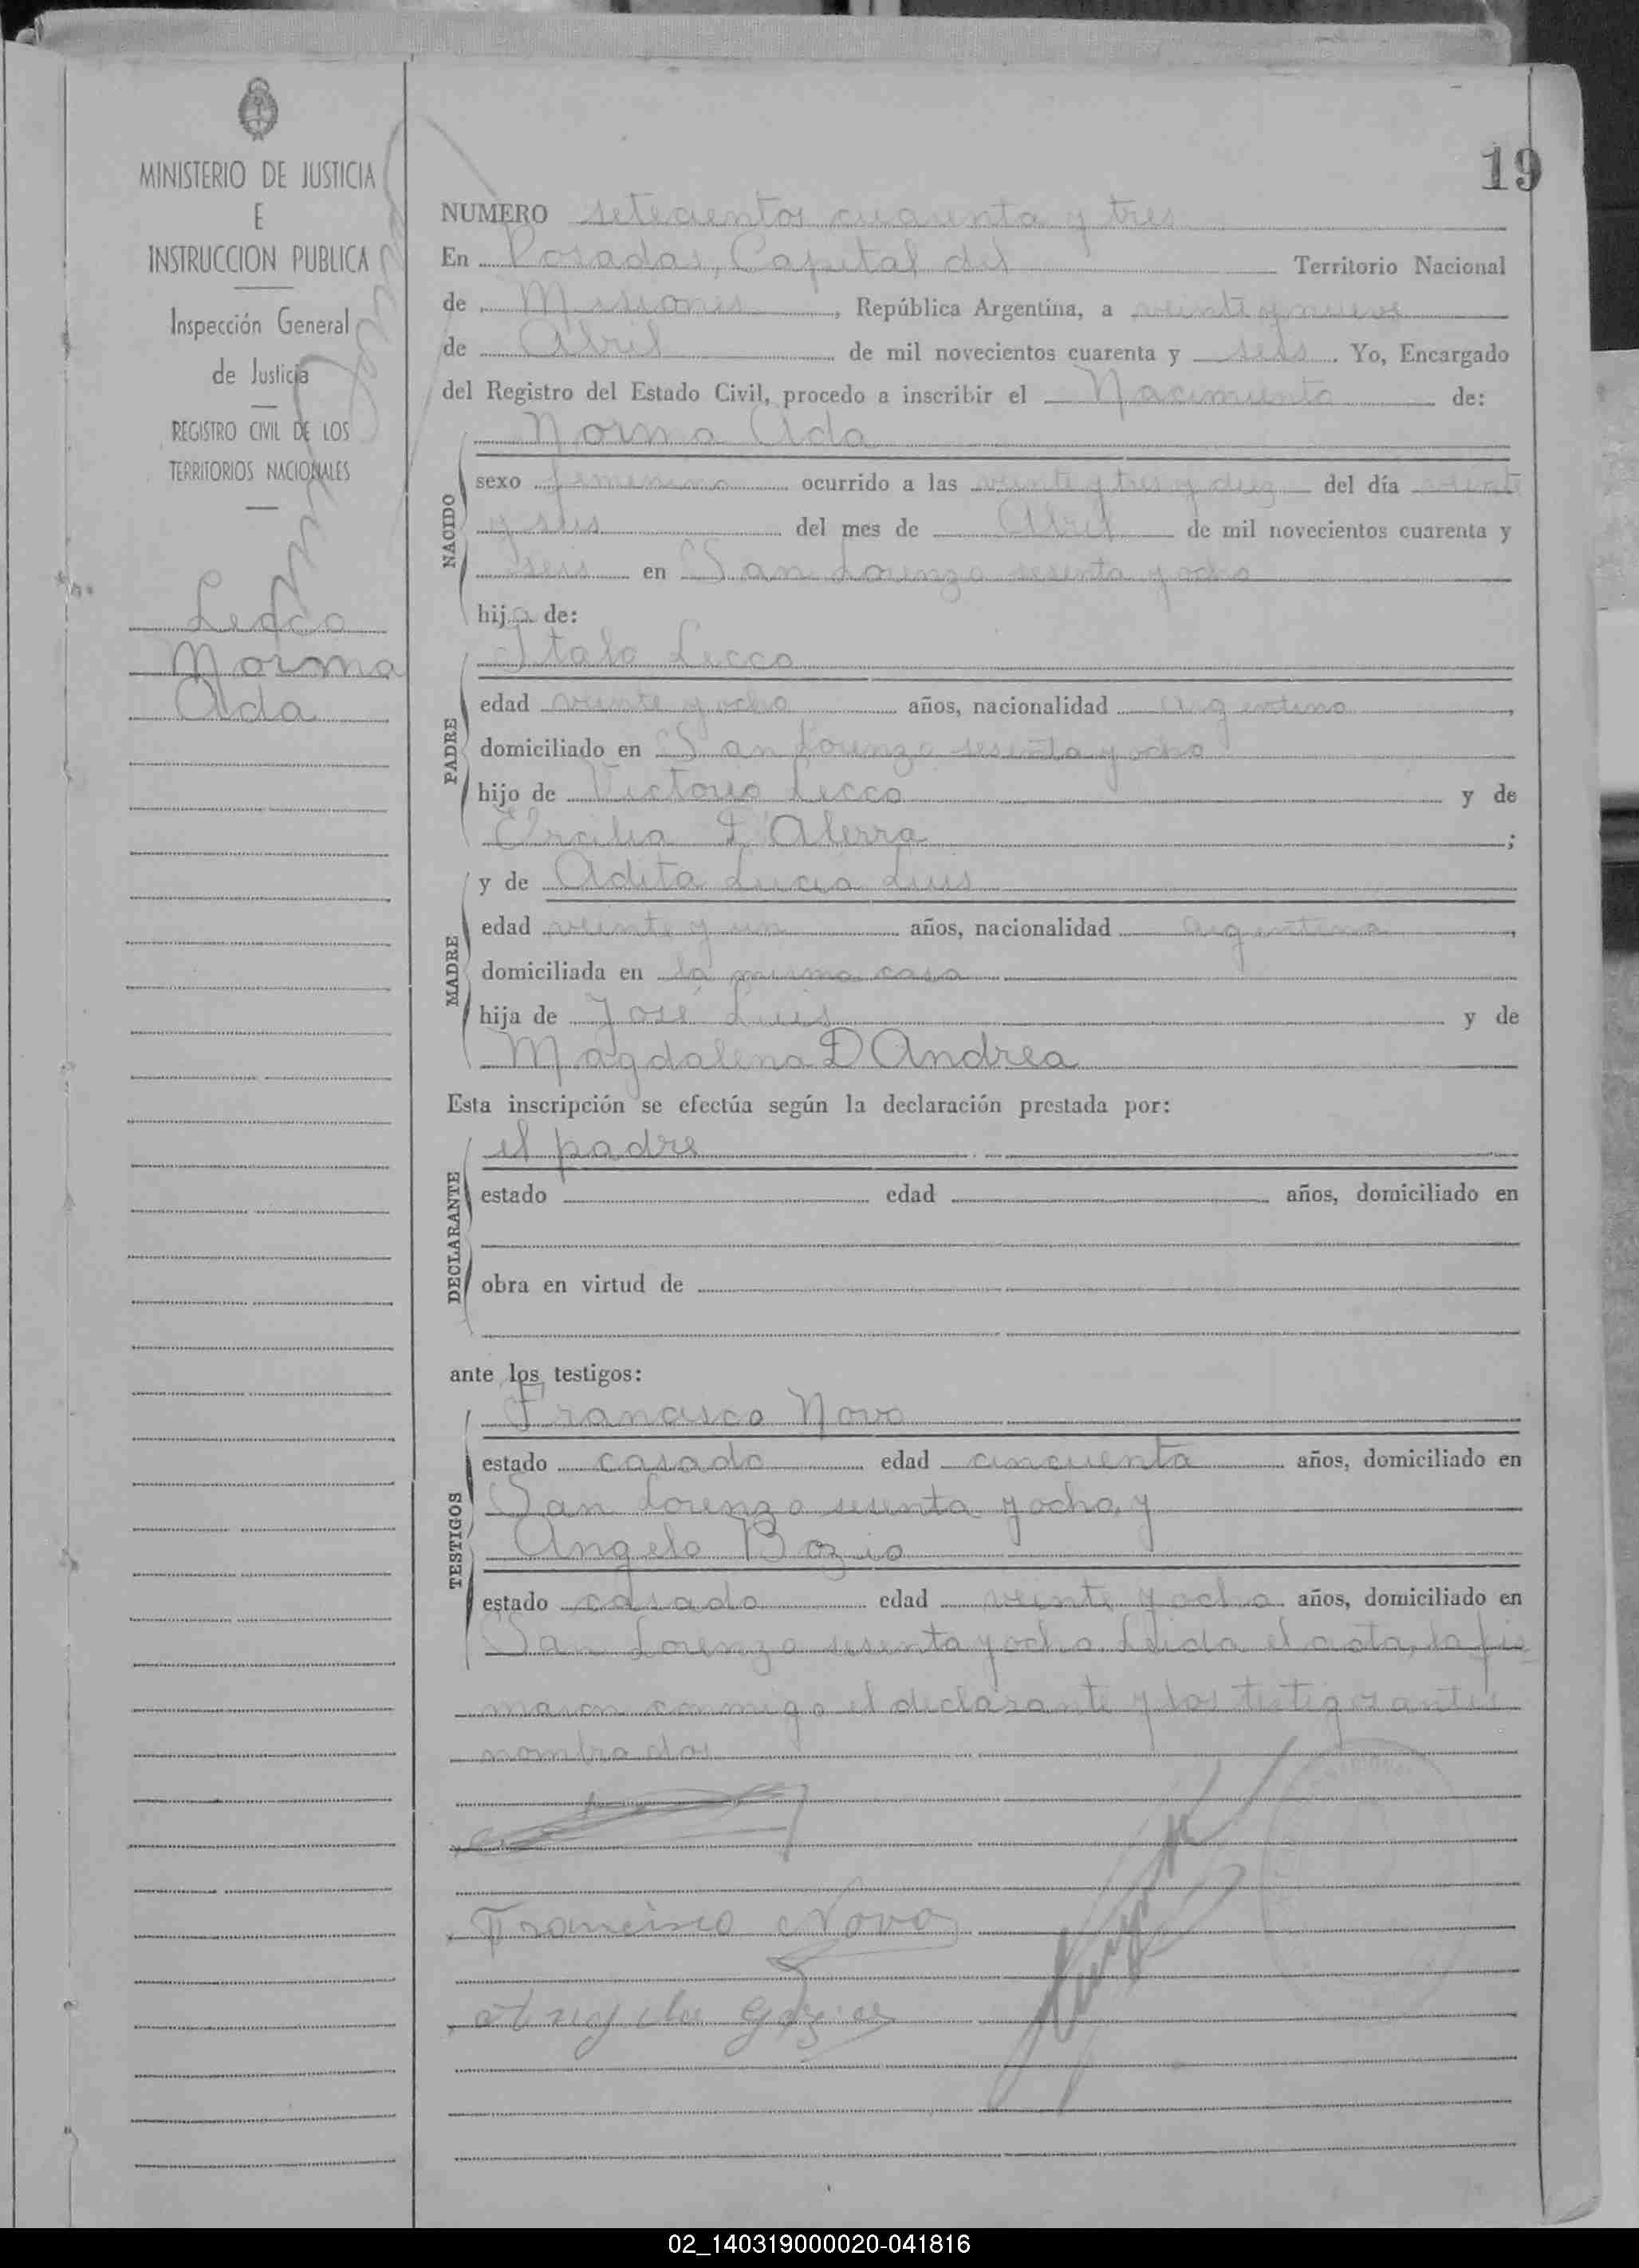 19
MINISTERIO DE JUSTICIA
E
INSTRUCCION PUBLICA
Inspección General
de Justicia
REGISTRO CIVIL DE LOS
TERRITORIOS NACIONALES
Lecco
Norma
Aida
NUMERO setecientos cuarenta y tres
En Posadas, Capital del Territorio Nacional
de Misiones, República Argentina, a veinte y nueve
de Abril de mil novecientos cuarenta y seis. Yo, Encargado
del Registro del Estado Civil, procedo a inscribir el Nacimiento de:
NACIDO
Norma Aida
sexo femenino ocurrido a las veinte y tres y diez del día veinte
y seis del mes de Abril de mil novecientos cuarenta y
seis en San Lorenzo sesenta y ocho
hija de:
PADRE
Italo Lecco
edad veinte y ocho años, nacionalidad argentino,
domiciliado en San Lorenzo sesenta y ocho
hijo de Victorio Lecco y de
Ercilia ;
MADRE
y de Adita Lucia Luis
edad veinte y un años, nacionalidad argentina,
domiciliada en la misma casa
hija de José Luis y de
Magdalena D'Andrea
Esta inscripción se efectúa según la declaración prestada por:
DECLARANTE
el padre
estado edad años, domiciliado en
obra en virtud de
ante los testigos:
TESTIGOS
Francisco Novo
estado casado edad cincuenta años, domiciliado en
San Lorenzo sesenta y ocho, y
Angelo Bozio
estado casado edad veinte y ocho años, domiciliado en
San Lorenzo sesenta y ocho. Leida el acta, la fir
maron conmigo el declarante y los testigos antes
nombrados
Francisco Novo
02_140319000020-041816